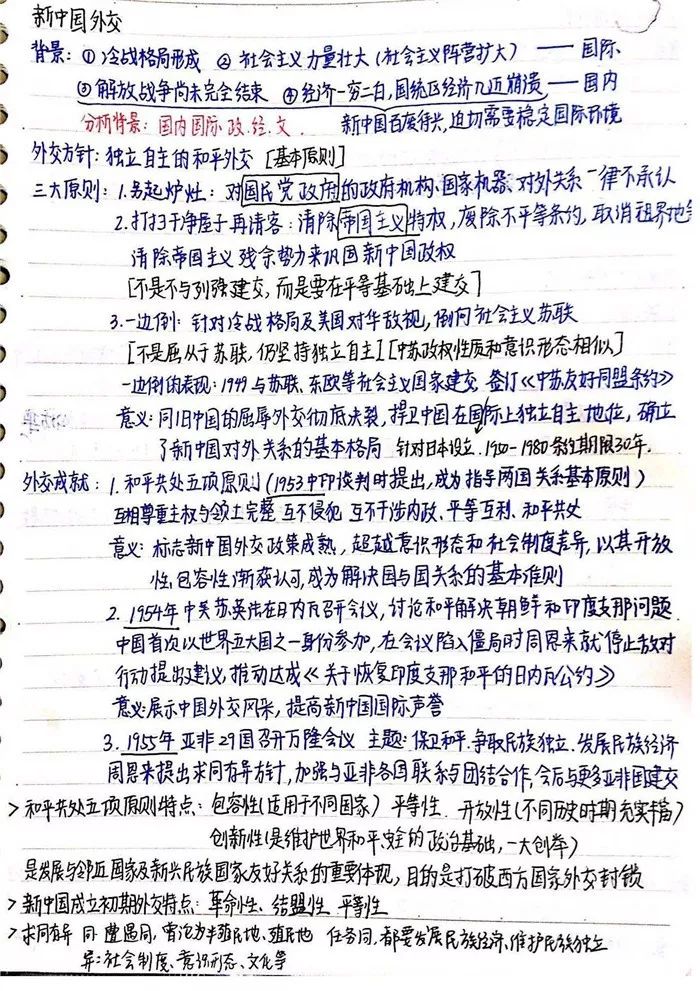 新中国外交
背景: ① 冷战格局形成 ② 社会主义力量壮大 (社会主义阵营扩大) —— 国际
③ 解放战争尚未完全结束 ④ 经济一穷二白, 国统区经济几近崩溃 —— 国内
分析背景: 国内国际. 政. 经. 文. 新中国百废待兴, 迫切需要稳定国际环境
外交方针: 独立自主的和平外交 [基本原则]
三大原则: 1. 另起炉灶: 对国民党政府的政府机构、国家机器、对外关系一律不承认
2. 打扫干净屋子再请客: 清除帝国主义特权, 废除不平等条约, 取消租界地等
清除帝国主义残余势力来巩固新中国政权
[不是不与列强建交, 而是要在平等基础上建交]
3. 一边倒: 针对冷战格局及美国对华敌视, 倒向社会主义苏联
[不是屈从于苏联, 仍坚持独立自主] [中苏政权性质和意识形态相似]
一边倒的表现: 1949 与苏联、东欧等社会主义国家建交 签订《中苏友好同盟条约》
意义: 同旧中国的屈辱外交彻底决裂, 捍卫中国在国际上独立自主地位, 确立
了新中国对外关系的基本格局 针对日本设立. 1950-1980 条约期限30年.
外交成就: 1. 和平共处五项原则 (1953中印谈判时提出, 成为指导两国关系基本原则)
互相尊重主权与领土完整 互不侵犯 互不干涉内政、平等互利、和平共处
意义: 标志新中国外交政策成熟, 超越意识形态和社会制度差异, 以其开放
性, 包容性渐获认可, 成为解决国与国关系的基本准则
2. 1954年 中美苏英法在日内瓦召开会议, 讨论和平解决朝鲜和印度支那问题
中国首次以世界五大国之一身份参加, 在会议陷入僵局时周恩来就停止敌对
行动提出建议, 推动达成《关于恢复印度支那和平的日内瓦公约》
意义: 展示中国外交风采, 提高新中国国际声誉
3. 1955年 亚非29国召开万隆会议 主题: 保卫和平. 争取民族独立. 发展民族经济
周恩来提出求同存异方针, 加强与亚非各国联系与团结合作, 会后与更多亚非国建交
> 和平共处五项原则特点: 包容性 (适用于不同国家) 平等性. 开放性 (不同历史时期充实丰富)
创新性 (是维护世界和平、安全的政治基础, 一大创举)
是发展与邻近国家及新兴民族国家友好关系的重要体现, 目的是打破西方国家外交封锁
> 新中国成立初期外交特点: 革命性、结盟性、平等性
> 求同存异 同: 遭遇同, 常沦为半殖民地、殖民地 任务同, 都要发展民族经济、维护民族独立
异: 社会制度、意识形态、文化等